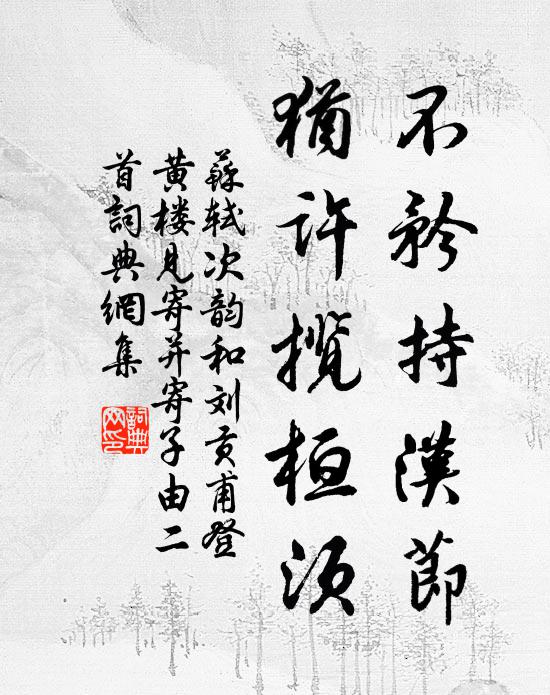 不矜持漢節
猶許攬桓須
蘇軾次韵和刘贡甫登
黄楼見寄并寄子由二
首詞典網集
詞典网印